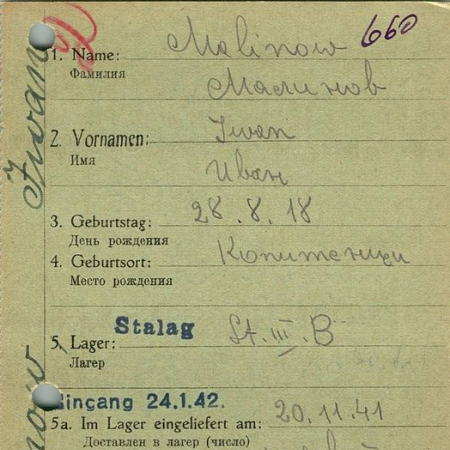 660
1. Name: Malinow
Фамилия Малинов
2. Vornamen: Iwan
Имя Иван
3. Geburtstag: 28.8.18
День рождения
4. Geburtsort: Копитеници
Место рождения
Stalag
5. Lager: St. III. B
Лагер
Eingang 24.1.42.
5a. Im Lager eingeliefert am: 20.11.41
Доставлен в лагер (число)
Iwan